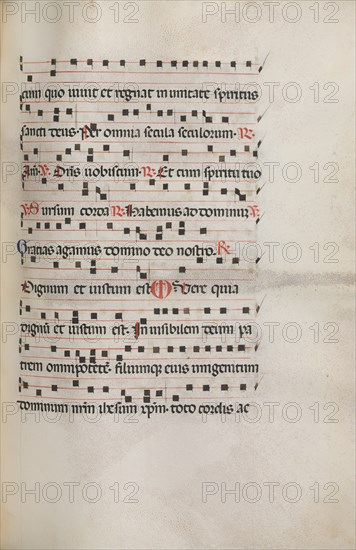 PHOTO 12 PHOTO 12 PHOTO 12
cum quo uiuit et regnat in unitate spiritus
sancti deus. Per omnia secula seculorum. R.
Am. V. Dns uobiscum. R. Et cum spiritu tuo
V. Sursum corda R. Habemus ad dominum. V.
Gracias agamus domino deo nostro. R.
Dignum et iustum est. Vere quia
dignu et iustum est. Inuisibilem deum pa
trem omnipotete. filiumque eius unigenitum
dominum nrm ihesum xpm. toto cordis ac